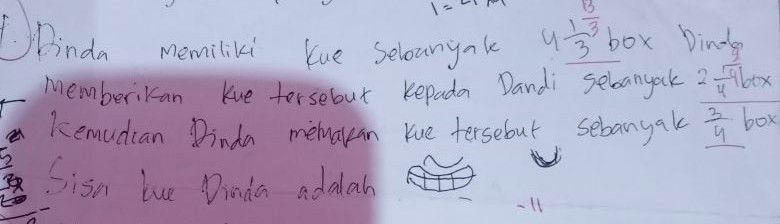 1.) Dinda memiliki kue sebanyak 4 1/3 13/3 box Dinda
memberikan kue tersebut kepada Dandi sebanyak 2 1/4 9/4 box
kemudian Dinda memakan kue tersebut sebanyak 3/4 box
Sisa kue Dinda adalah
-11